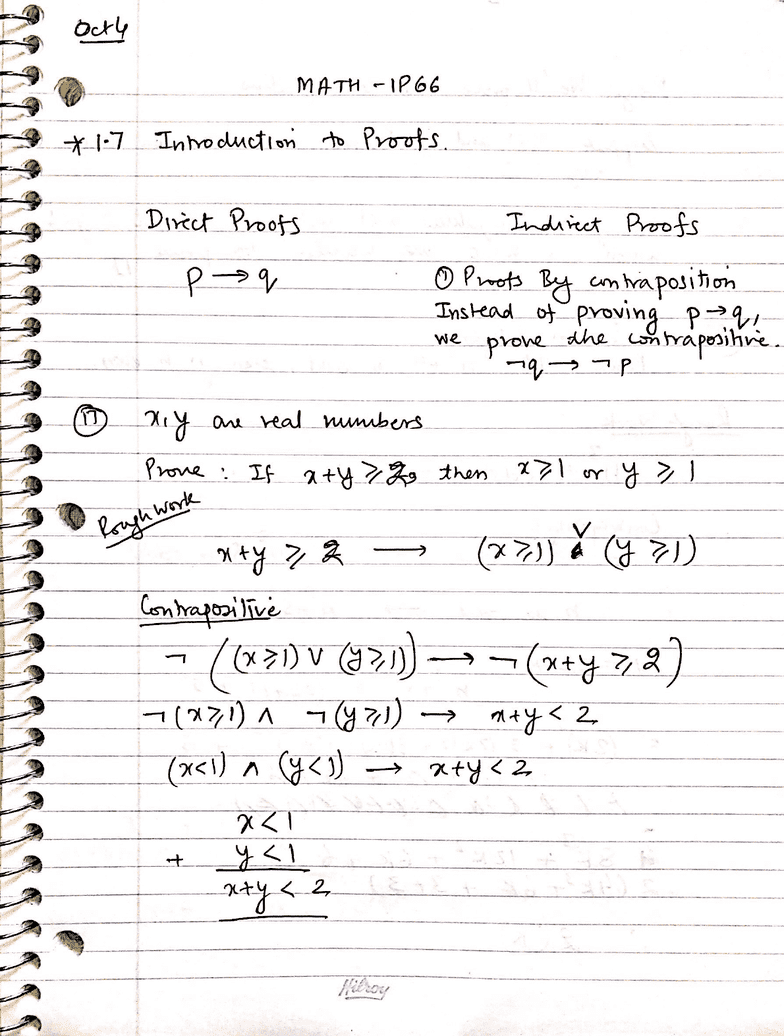 Oct 4
MATH - 1P66
* 1.7 Introduction to Proofs.
Direct Proofs
Indirect Proofs
p → q
① Proofs By contraposition
Instead of proving p → q,
we prove the contrapositive.
¬q → ¬p
⑰ x, y are real numbers
Prove : If x+y ≥ 2, then x ≥ 1 or y ≥ 1
Rough Work
x+y ≥ 2 → (x ≥ 1) ∨ (y ≥ 1)
Contrapositive
¬ ((x ≥ 1) ∨ (y ≥ 1)) → ¬ (x+y ≥ 2)
¬(x ≥ 1) ∧ ¬(y ≥ 1) → x+y < 2
(x<1) ∧ (y<1) → x+y < 2
x < 1
+ y < 1
x+y < 2
Hilroy